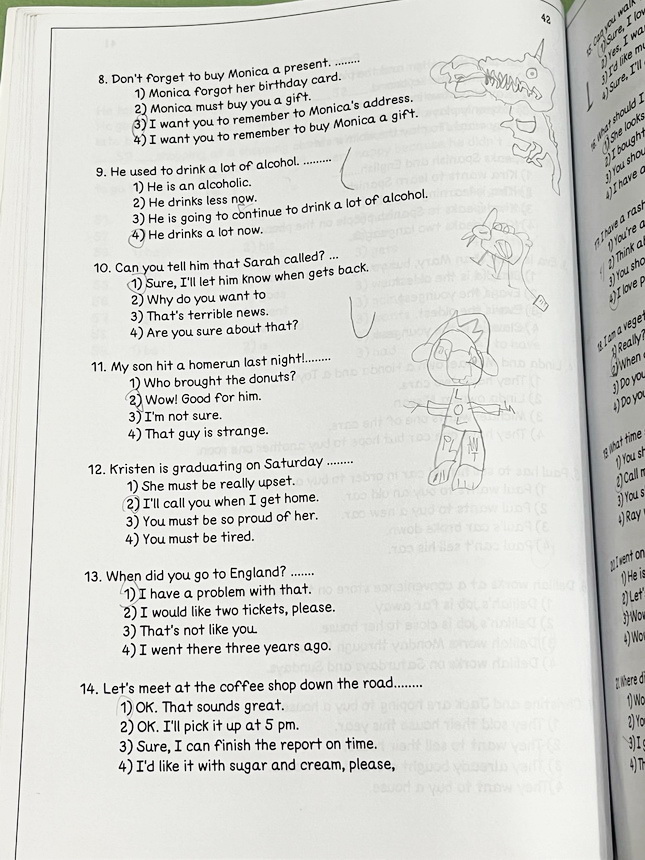 42
8. Don't forget to buy Monica a present. ........
1) Monica forgot her birthday card.
2) Monica must buy you a gift.
3) I want you to remember to Monica's address.
4) I want you to remember to buy Monica a gift.
9. He used to drink a lot of alcohol. .........
1) He is an alcoholic.
2) He drinks less now.
3) He is going to continue to drink a lot of alcohol.
4) He drinks a lot now.
10. Can you tell him that Sarah called? ...
1) Sure, I'll let him know when gets back.
2) Why do you want to
3) That's terrible news.
4) Are you sure about that?
11. My son hit a homerun last night!........
1) Who brought the donuts?
2) Wow! Good for him.
3) I'm not sure.
4) That guy is strange.
12. Kristen is graduating on Saturday ........
1) She must be really upset.
2) I'll call you when I get home.
3) You must be so proud of her.
4) You must be tired.
13. When did you go to England? .......
1) I have a problem with that.
2) I would like two tickets, please.
3) That's not like you.
4) I went there three years ago.
14. Let's meet at the coffee shop down the road........
1) OK. That sounds great.
2) OK. I'll pick it up at 5 pm.
3) Sure, I can finish the report on time.
4) I'd like it with sugar and cream, please,
L
O
L
15. Can you walk
1) Sure, I
2) Yes, I
3) I'd like
4) Sure, I'll
16. What should I
1) She looks
2) I bought
3) You
4) I have a
17. I have a rash
1) You're a
2) Think
3) You
4) I love
18. I am a
1) Really?
2) When
3) Do you
4) Do you
19. What time
1) You
2) Call
3) You
4) Ray
20. I went on
1) He is
2) Let'
3)
4)
21. Where
1)
2)
3) I
4)